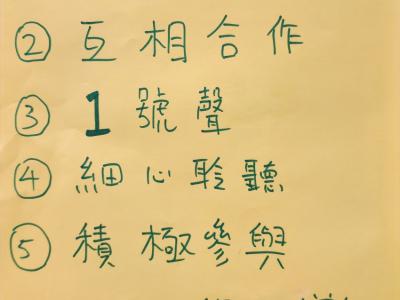 ② 互相合作
③ 1號聲
④ 細心聆聽
⑤ 積極參與